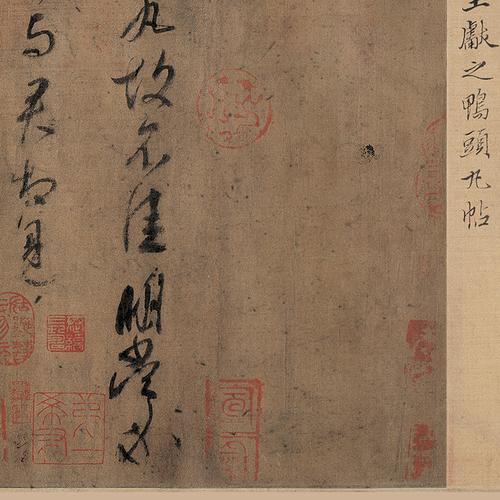 王獻之鴨頭丸帖
丸故不佳明當必
与君相見